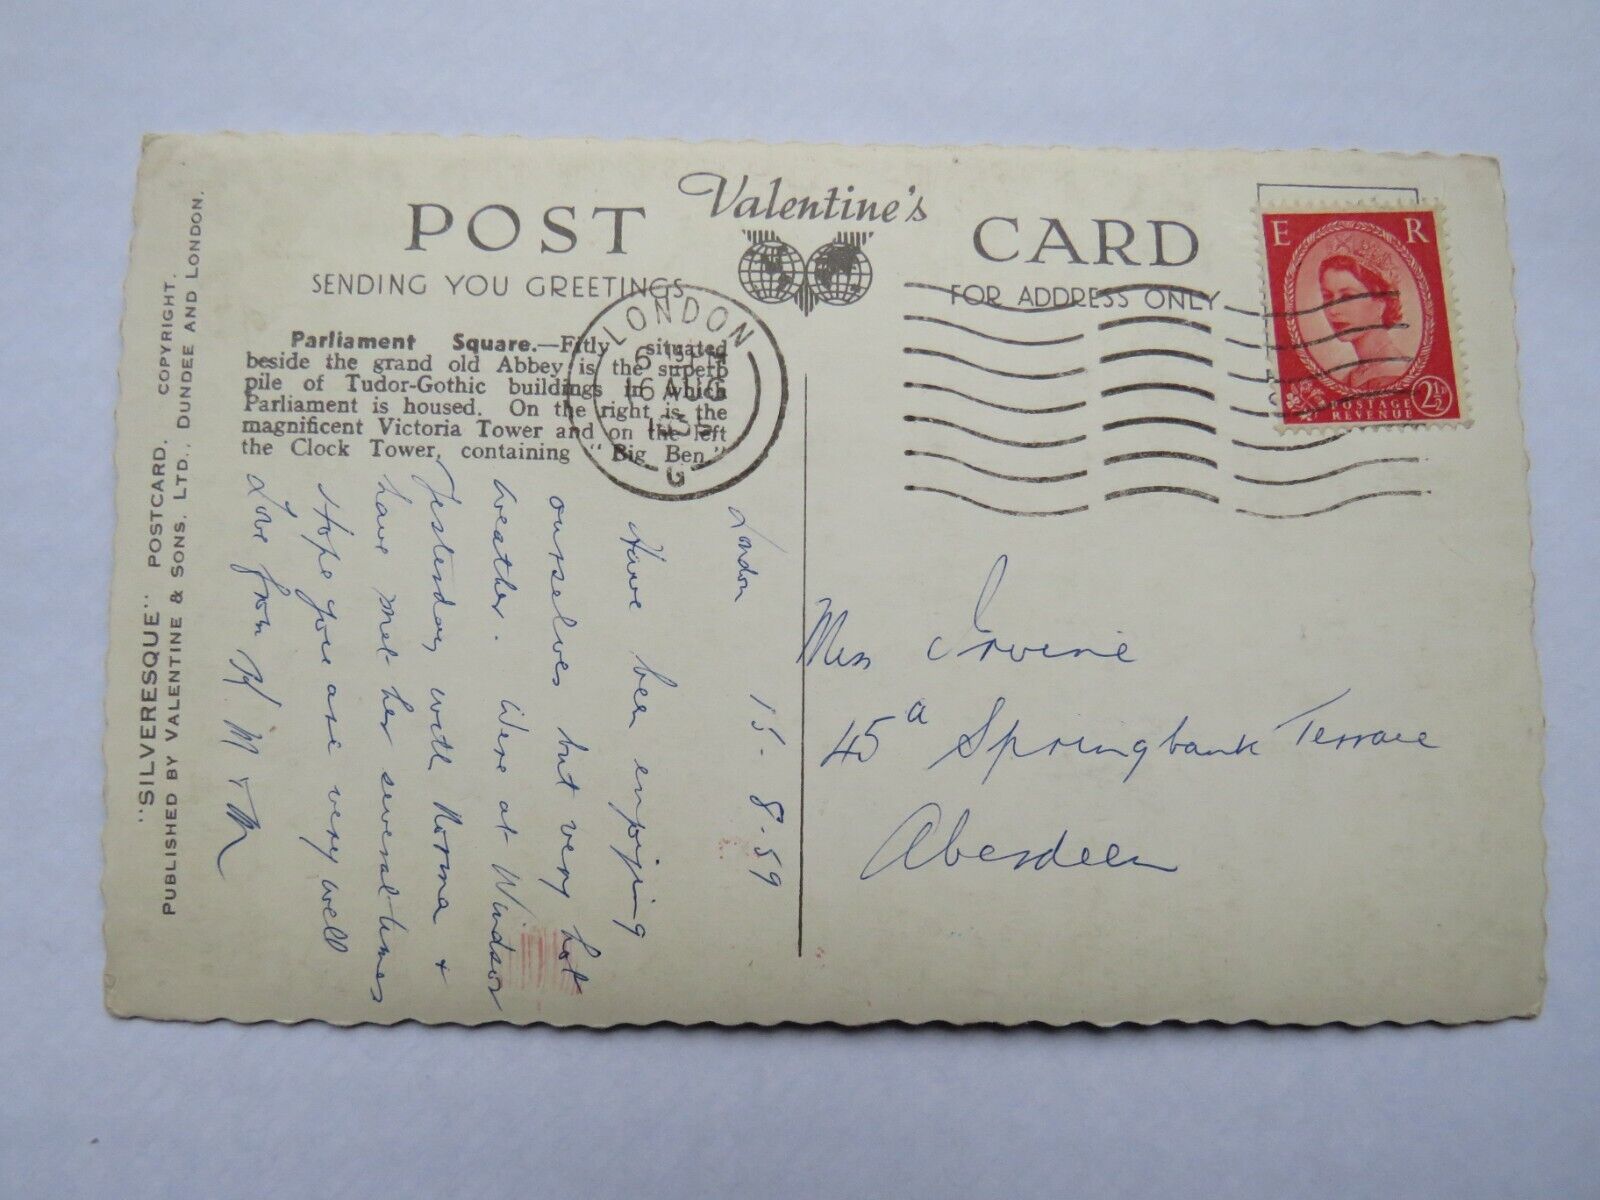 Valentine's
POST CARD
SENDING YOU GREETINGS
FOR ADDRESS ONLY
E R
POSTAGE
REVENUE
2½
LONDON
AUG
G
Parliament Square.—Fitly situated
beside the grand old Abbey is the superb
pile of Tudor-Gothic buildings in which
Parliament is housed. On the right is the
magnificent Victoria Tower and on the left
the Clock Tower, containing "Big Ben."
"SILVERESQUE" POSTCARD. COPYRIGHT.
PUBLISHED BY VALENTINE & SONS, LTD., DUNDEE AND LONDON.
London 15-8-59
Have been enjoying
ourselves but very hot
weather. Were at Windsor
Yesterday with Norma &
have met her several times
Hope you are very well
Love from H. M & M
Miss Irvine
45a Springbank Terrace
Aberdeen